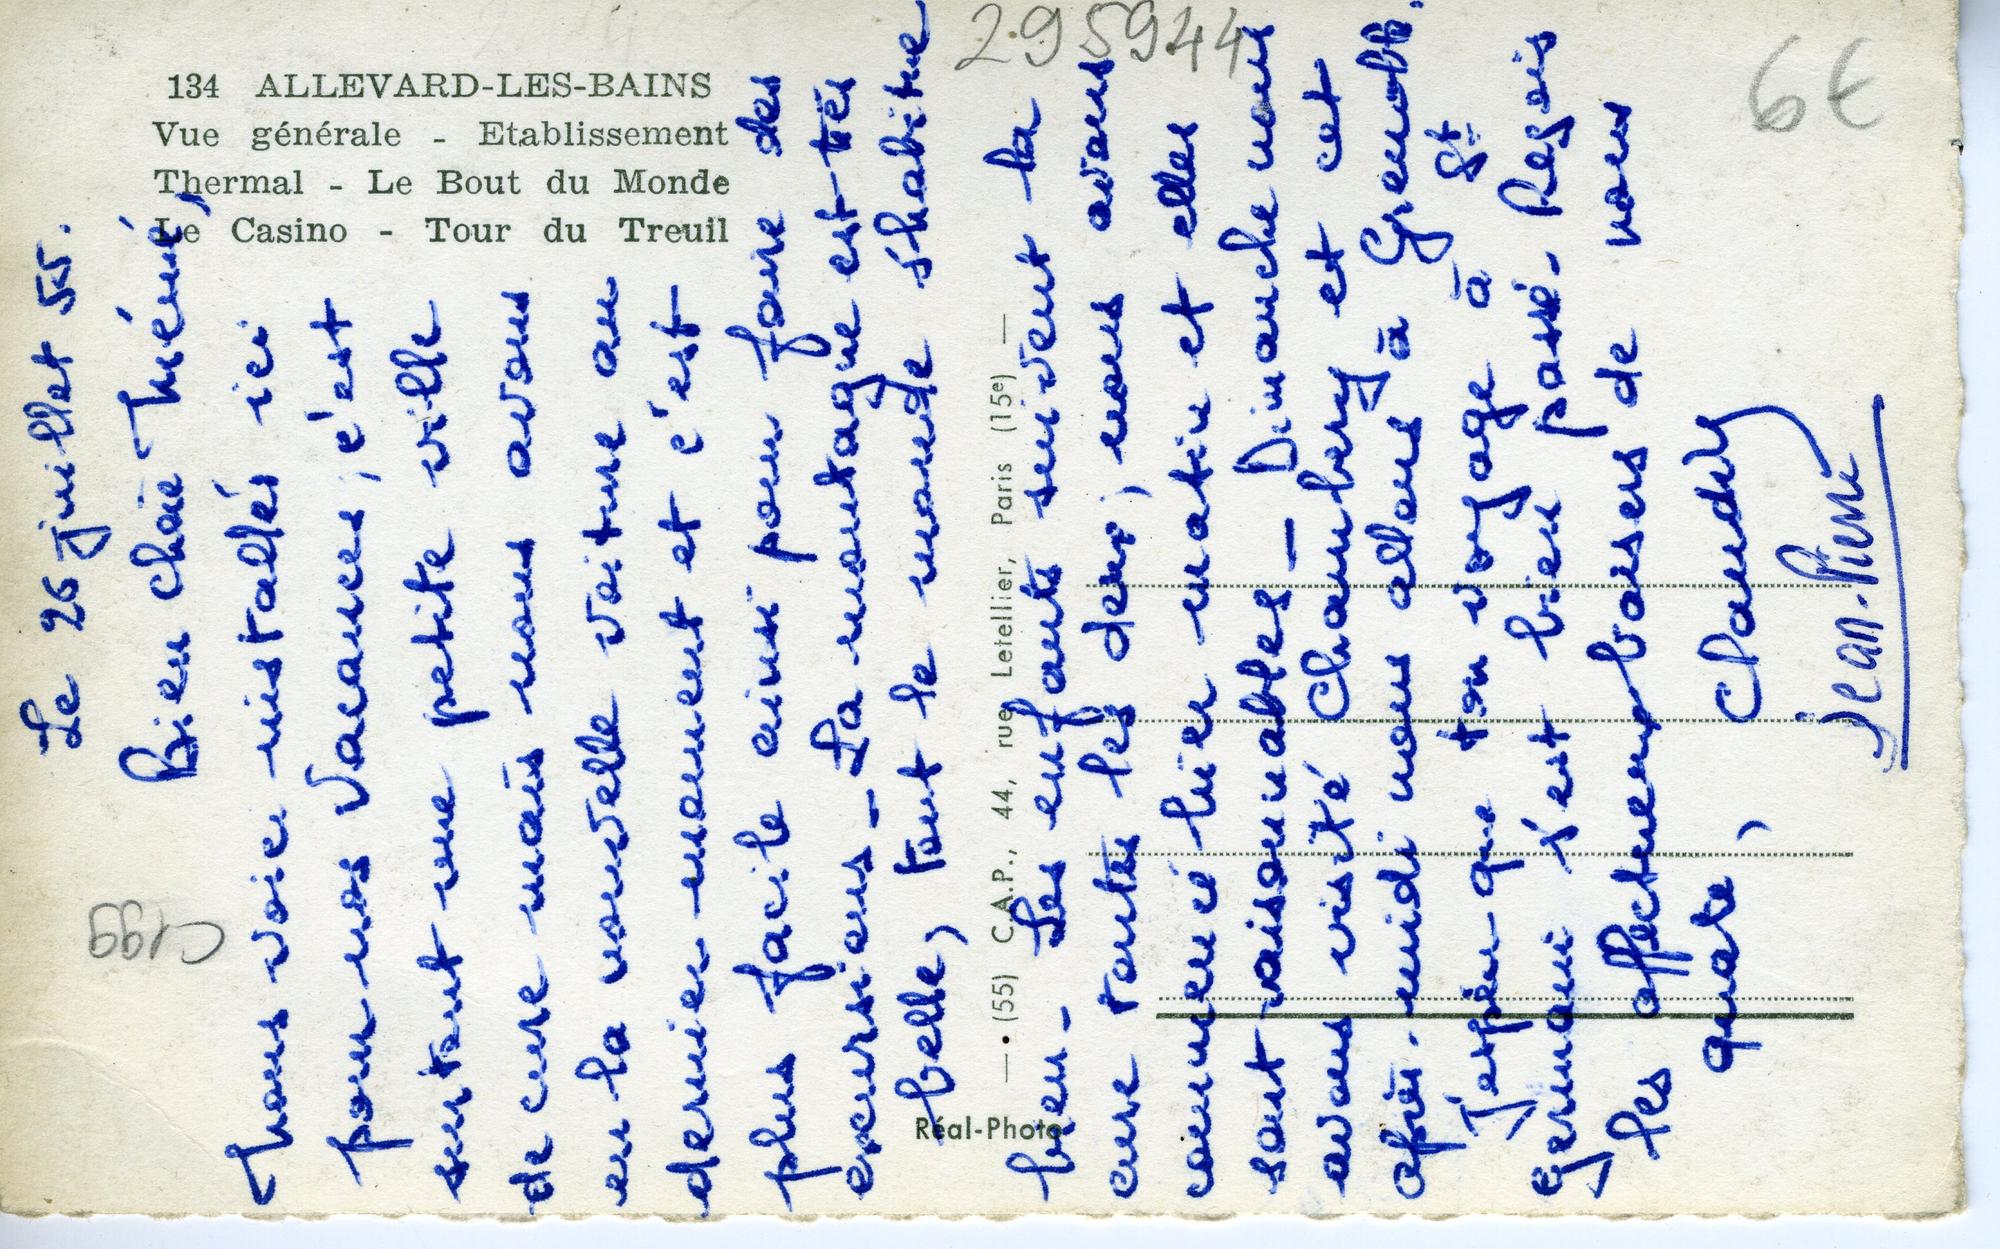 134 ALLEVARD-LES-BAINS
Vue générale - Etablissement
Thermal - Le Bout du Monde
Le Casino - Tour du Treuil
295944
6€
C199
— • (55) C.A.P., 44, rue Letellier, Paris (15e) —
Réal-Photo
Le 26 juillet 55.
Bien chère Mémé,
Nous voici installés ici
pour nos vacances ; c'est
surtout une petite ville
de cure mais nous avons
eu la nouvelle voiture au
dernier moment et c'est
plus facile ainsi pour faire des
excursions - La montagne est très
belle, tout le monde s'habitue
bien - Les enfants suivent la
cure toutes les deux ; nous avons
commencé hier matin et elles
sont raisonnables - Dimanche nous
avons visité Chambery et cet
après-midi nous allons à Grenoble.
J'espère que ton voyage à St
Germain s'est bien passé - Reçois
les affectueux baisers de nous
quatre,
Claudy
Jean-Pierre